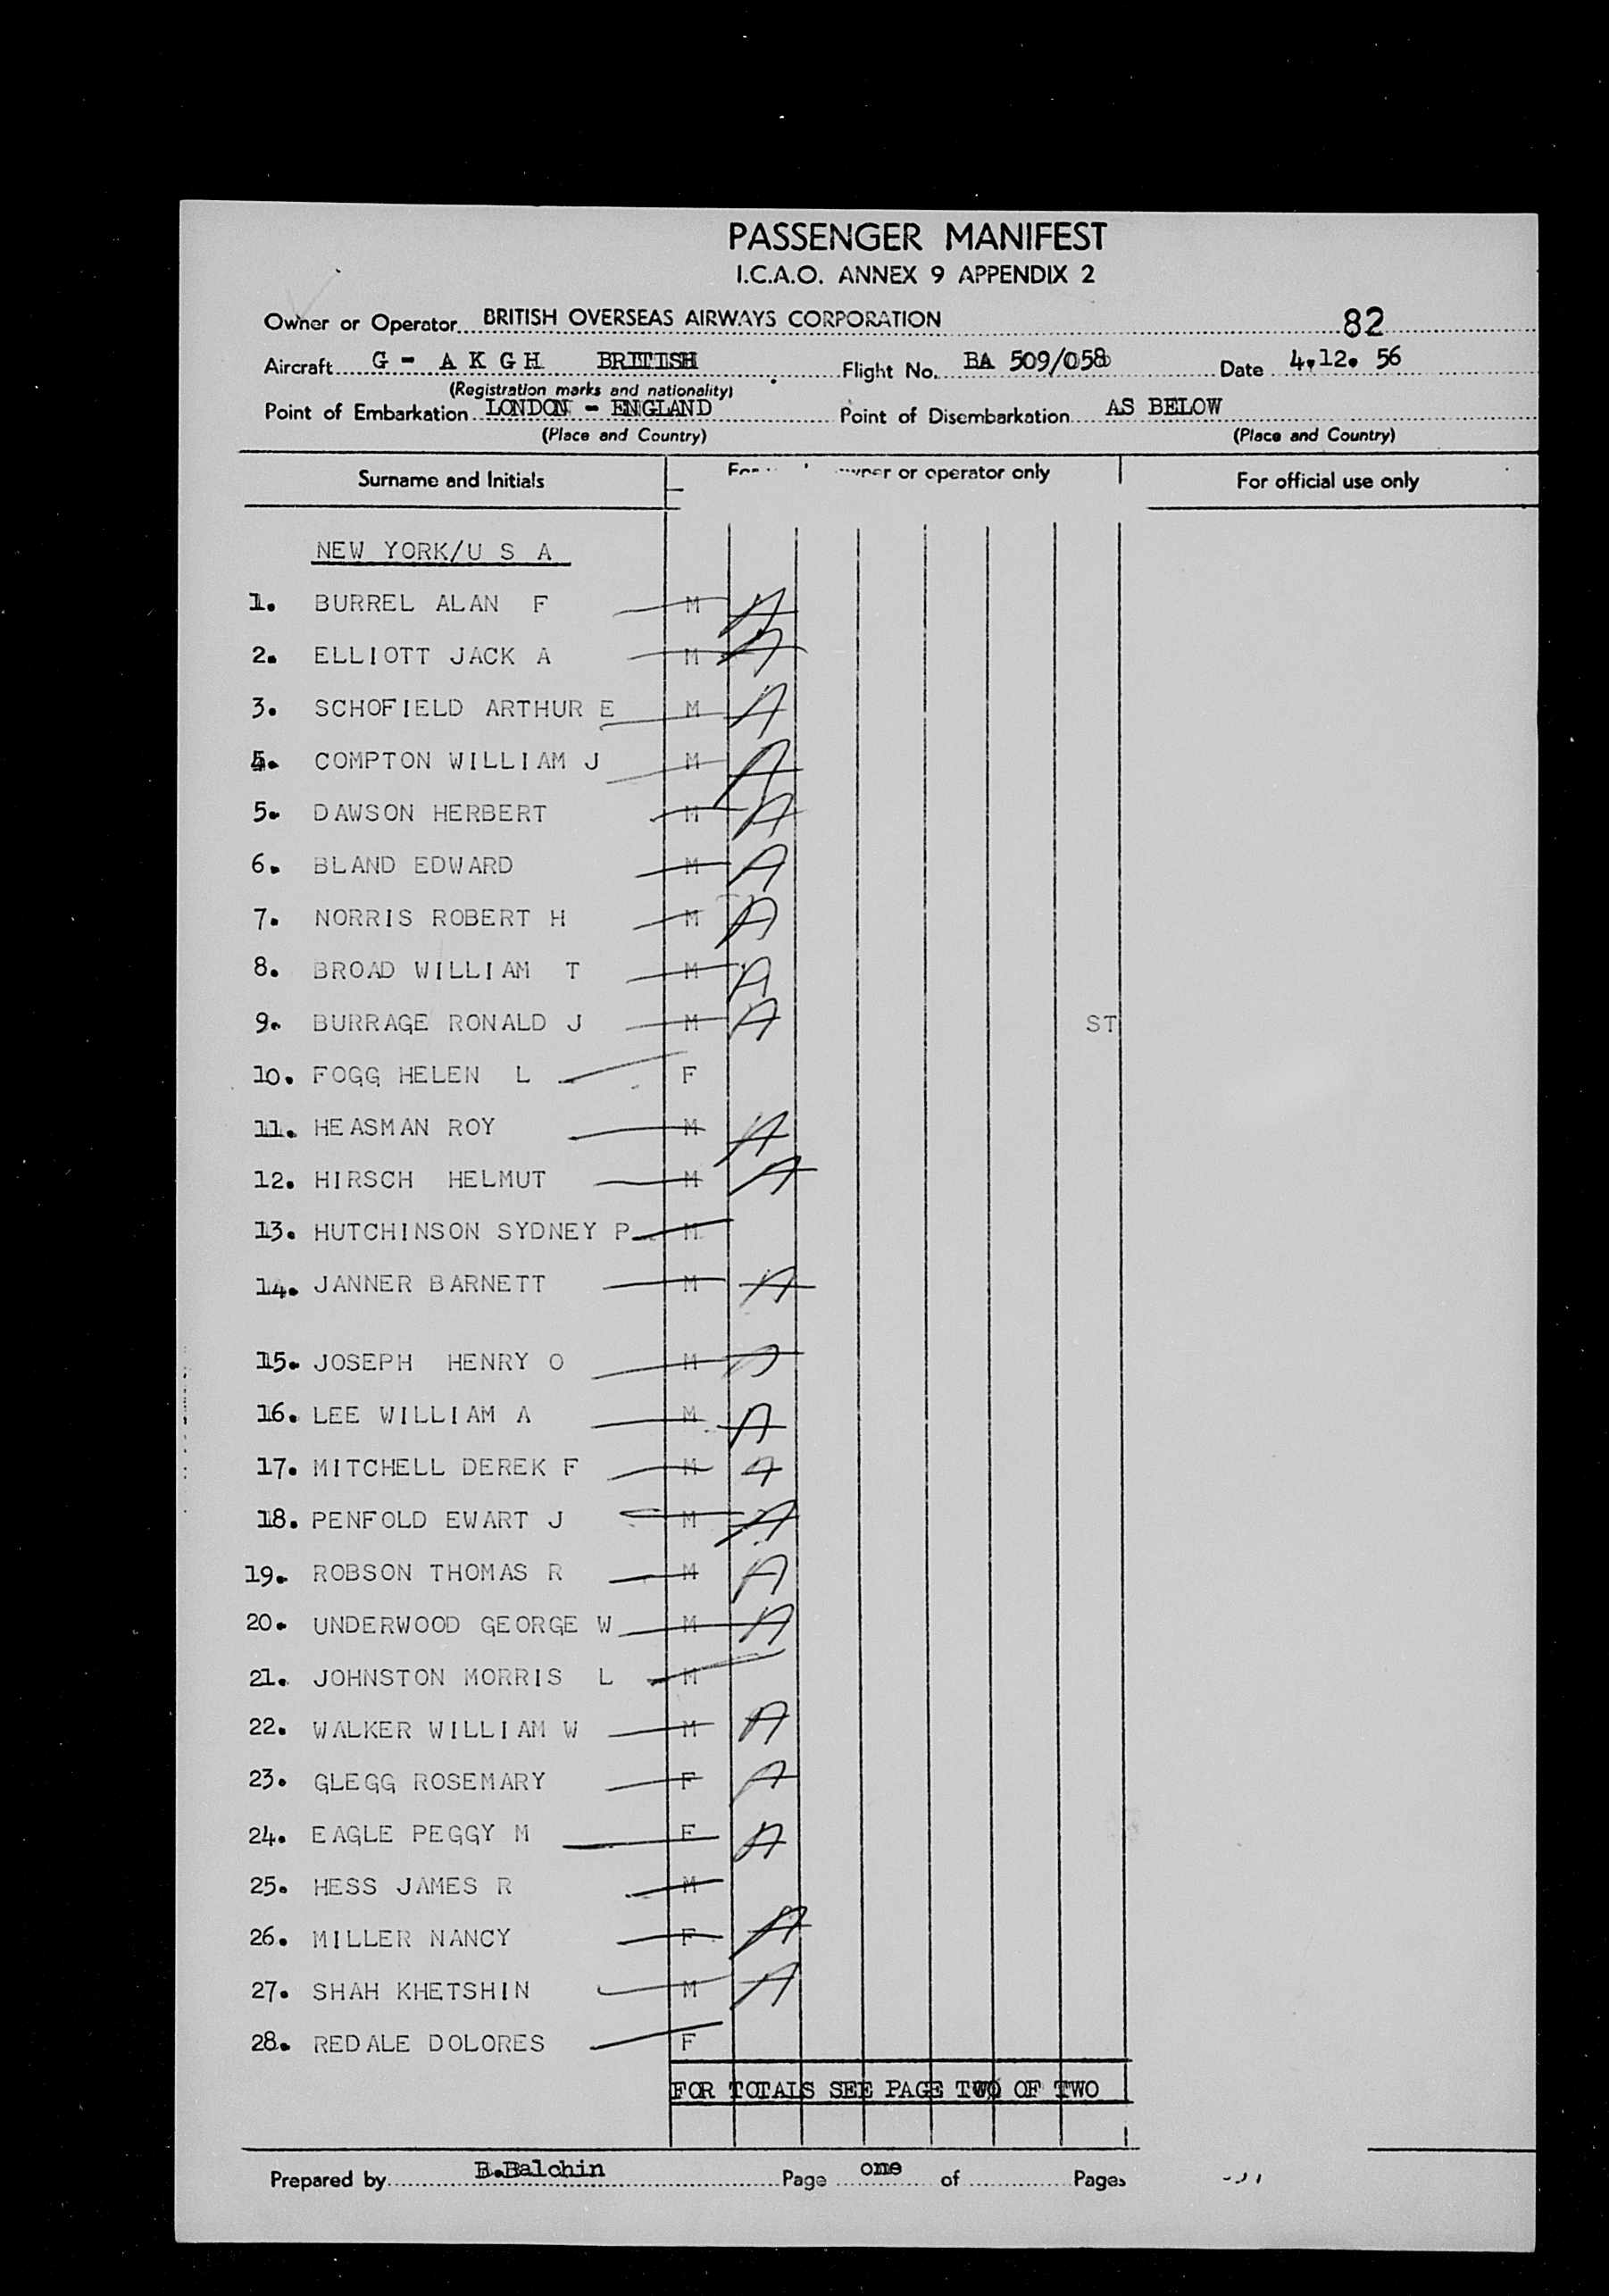 PASSENGER MANIFEST
I.C.A.O. ANNEX 9 APPENDIX 2
Owner or Operator BRITISH OVERSEAS AIRWAYS CORPORATION 82
Aircraft G - A K G H BRITISH Flight No. BA 509/058 Date 4.12. 56
(Registration marks and nationality)
Point of Embarkation LONDON - ENGLAND Point of Disembarkation AS BELOW
(Place and Country) (Place and Country)
Surname and Initials owner or operator only For official use only
NEW YORK/U S A
1. BURREL ALAN F M A
2. ELLIOTT JACK A M A
3. SCHOFIELD ARTHUR E M A
4. COMPTON WILLIAM J M A
5. DAWSON HERBERT M A
6. BLAND EDWARD M A
7. NORRIS ROBERT H M A
8. BROAD WILLIAM T M A
9. BURRAGE RONALD J M A ST
10. FOGG HELEN L F
11. HEASMAN ROY M A
12. HIRSCH HELMUT M A
13. HUTCHINSON SYDNEY P M
14. JANNER BARNETT M A
15. JOSEPH HENRY O M A
16. LEE WILLIAM A M A
17. MITCHELL DEREK F M A
18. PENFOLD EWART J M A
19. ROBSON THOMAS R M A
20. UNDERWOOD GEORGE W M A
21. JOHNSTON MORRIS L M
22. WALKER WILLIAM W M A
23. GLEGG ROSEMARY F A
24. EAGLE PEGGY M F A
25. HESS JAMES R M
26. MILLER NANCY F A
27. SHAH KHETSHIN M A
28. REDALE DOLORES F
FOR TOTALS SEE PAGE TWO OF TWO
Prepared by B.Balchin Page one of Pages